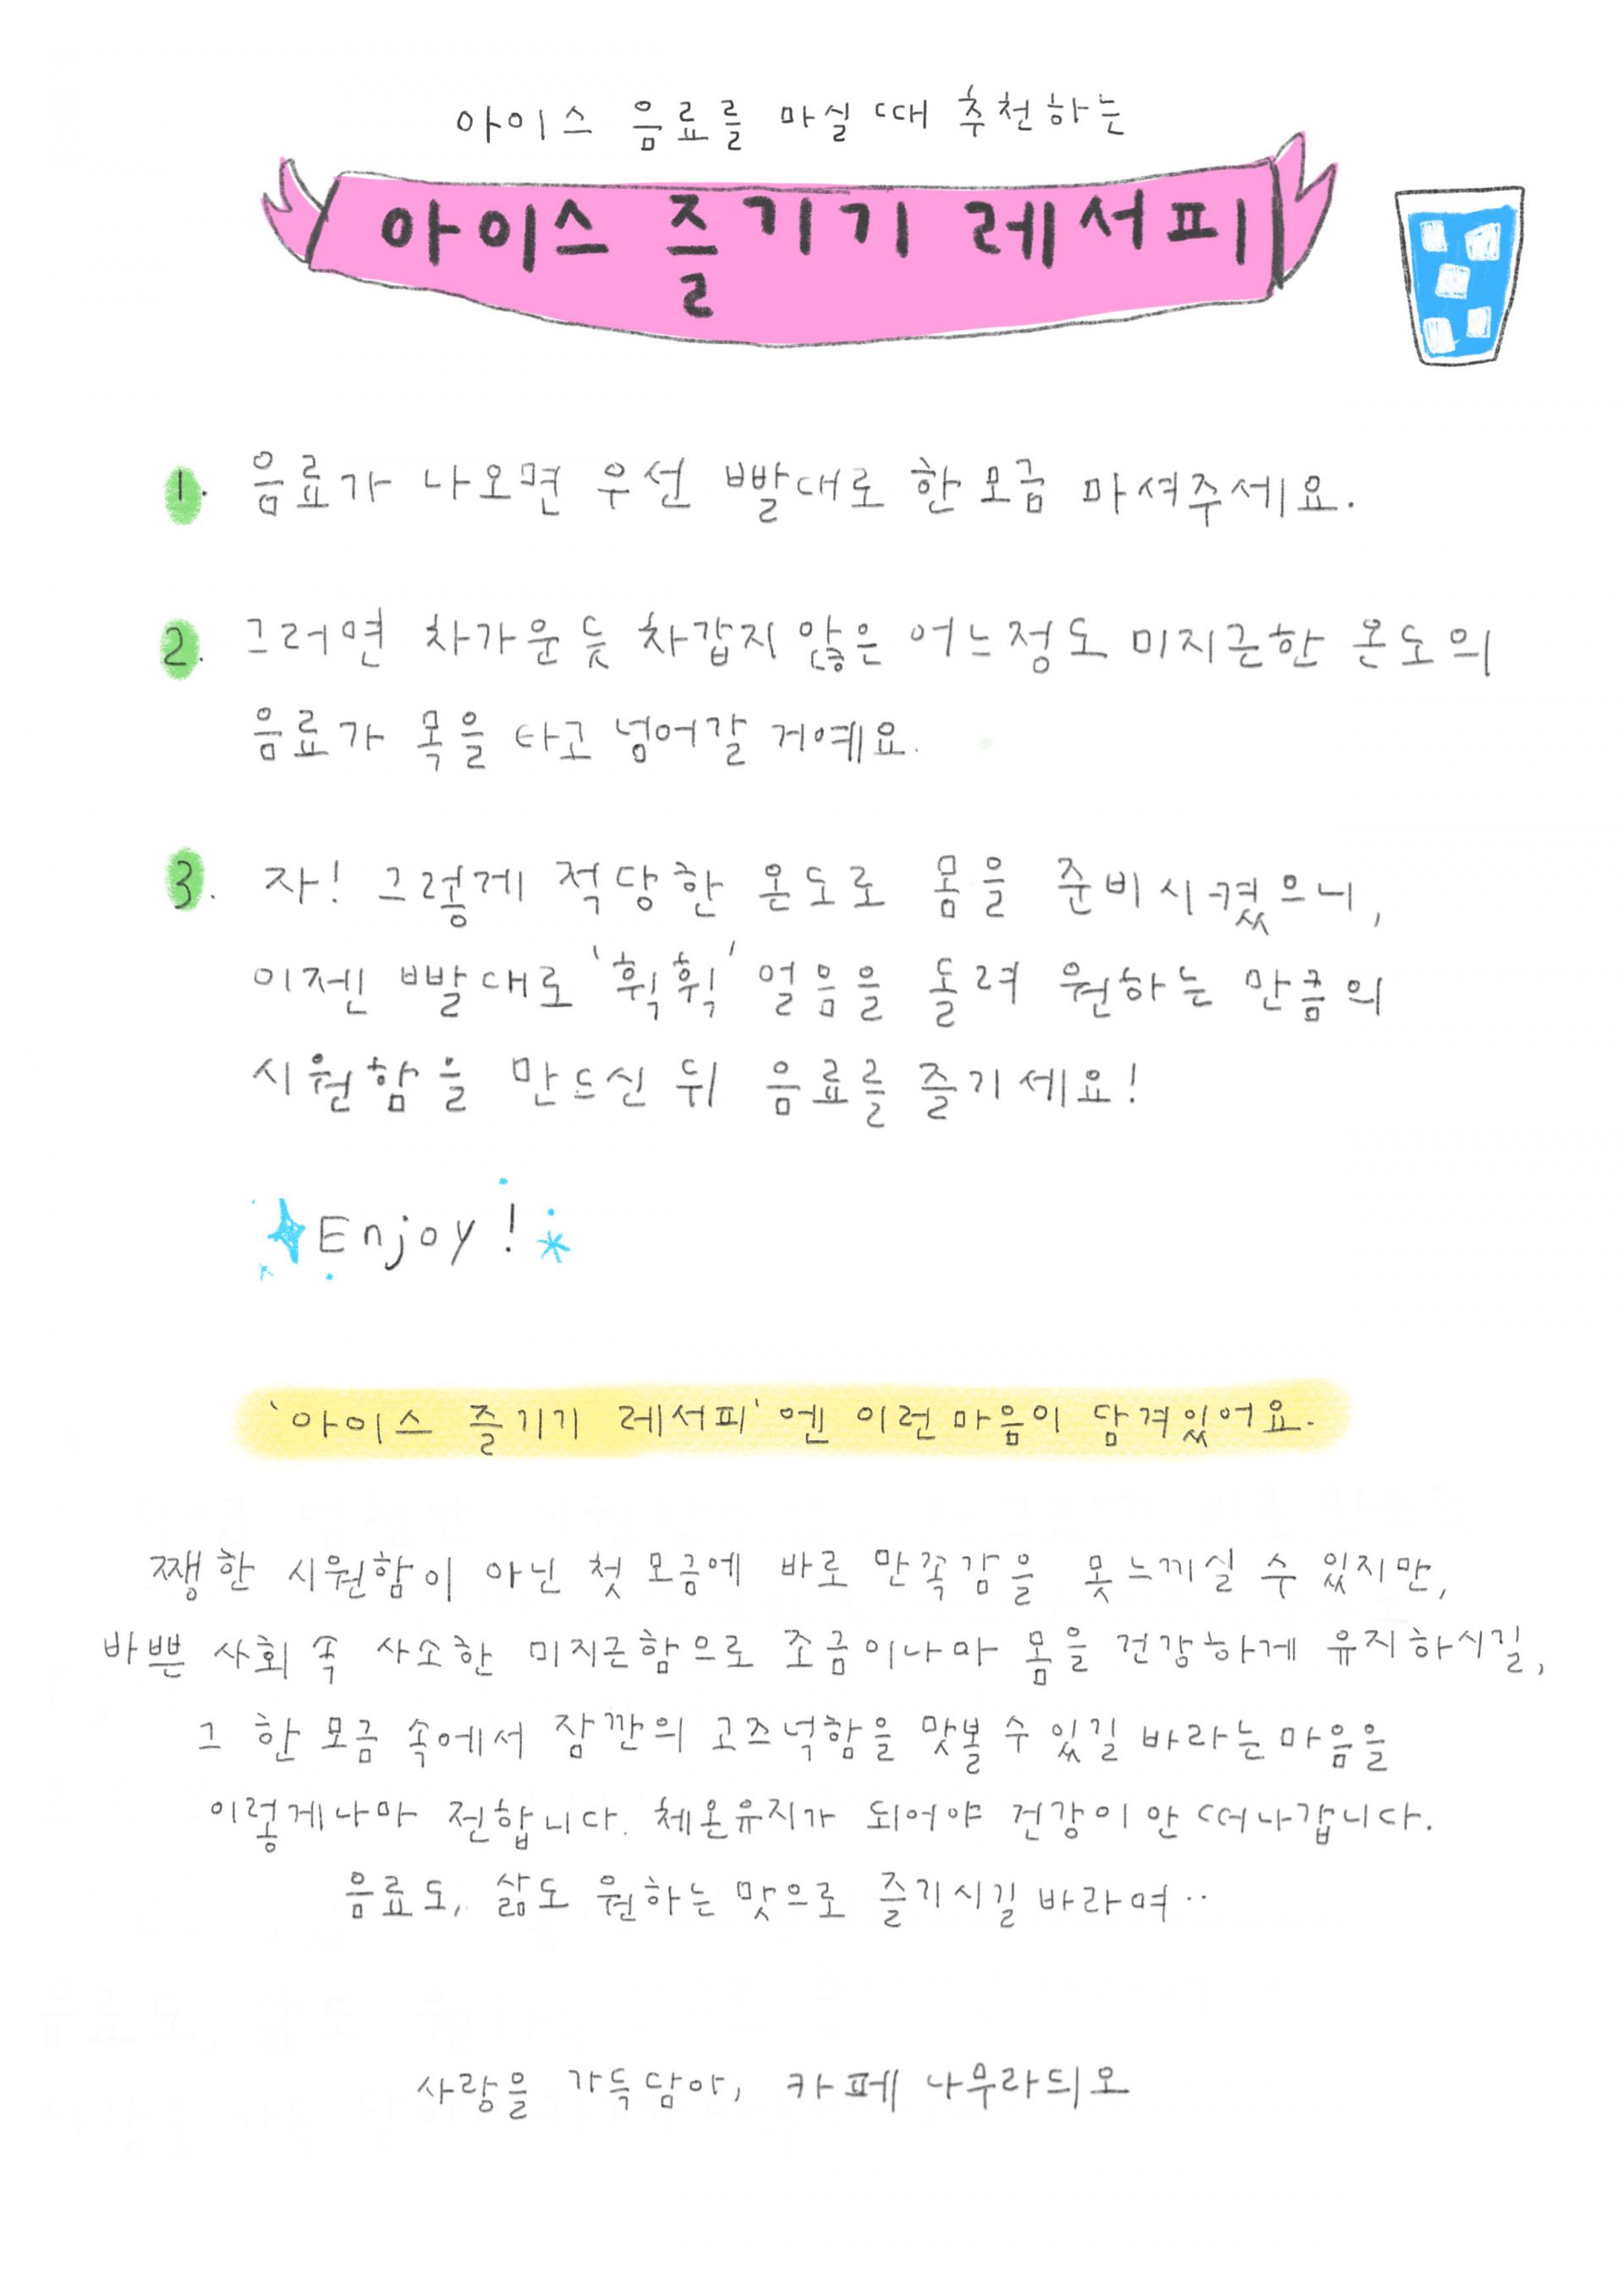 아이스 음료를 마실 때 추천하는
아이스 즐기기 레서피
1. 음료가 나오면 우선 빨대로 한모금 마셔주세요.
2. 그러면 차가운듯 차갑지 않은 어느정도 미지근한 온도의
음료가 목을 타고 넘어갈 거예요.
3. 자! 그렇게 적당한 온도로 몸을 준비시켰으니,
이젠 빨대로 '휙휙' 얼음을 돌려 원하는 만큼의
시원함을 만드신 뒤 음료를 즐기세요!
Enjoy!
'아이스 즐기기 레서피'엔 이런 마음이 담겨있어요.
쨍한 시원함이 아닌 첫 모금에 바로 만족감을 못느끼실 수 있지만,
바쁜 사회 속 사소한 미지근함으로 조금이나마 몸을 건강하게 유지하시길,
그 한 모금 속에서 잠깐의 고즈넉함을 맛볼 수 있길 바라는 마음을
이렇게나마 전합니다. 체온유지가 되어야 건강이 안 떠나갑니다.
음료도, 삶도 원하는 맛으로 즐기시길 바라며..
사랑을 가득담아, 카페 나무라듸오